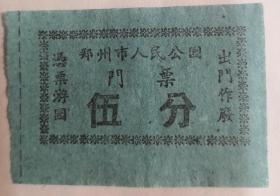 郑州市人民公园
门票
伍分
憑票游园
出門作廢